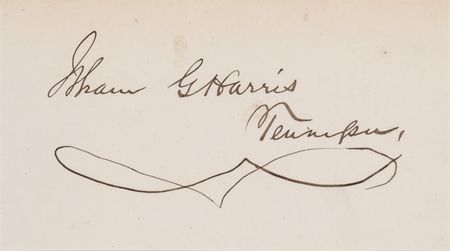 Isham G Harris
Tennessee,